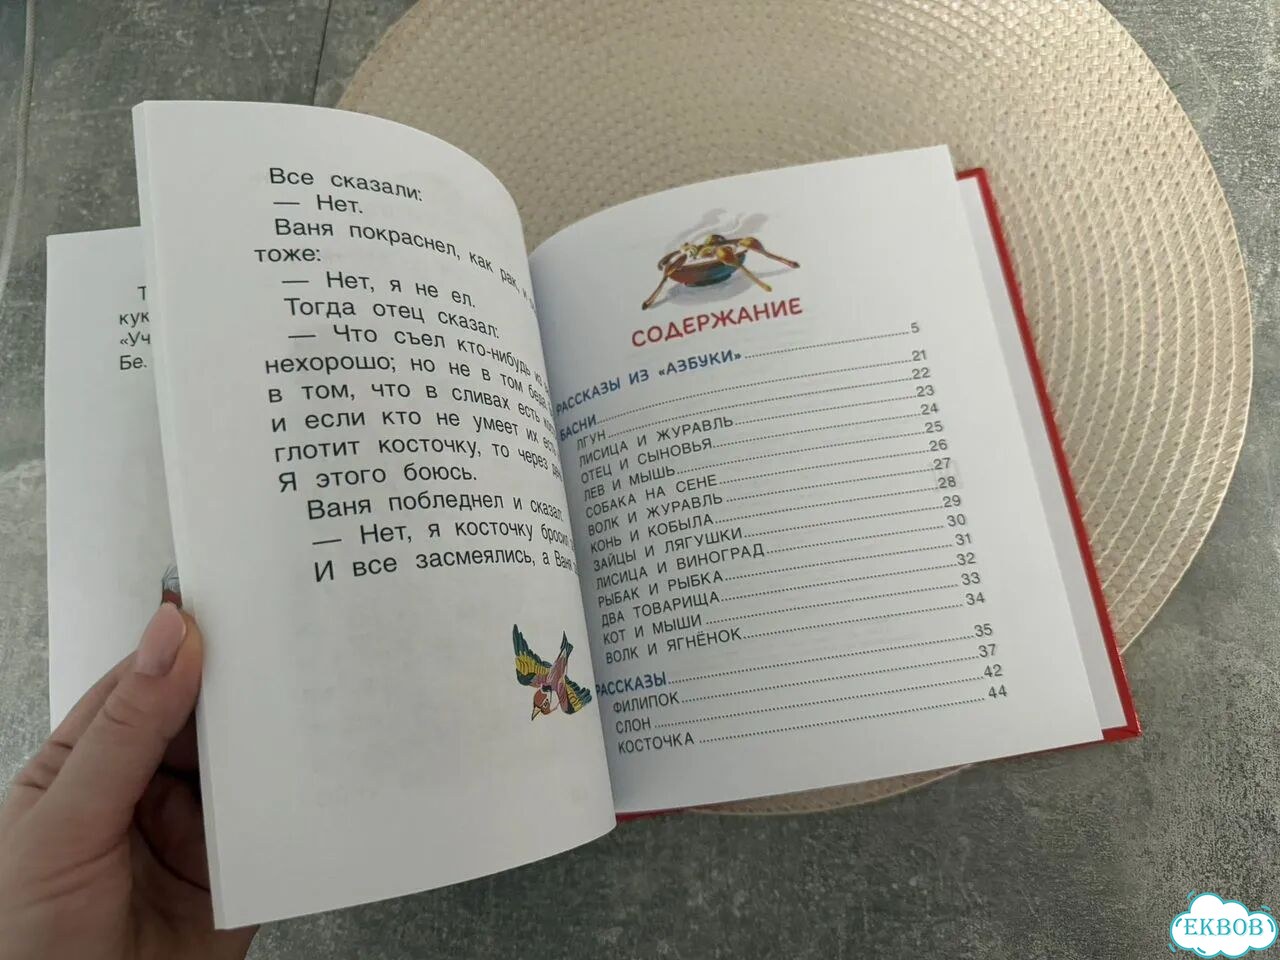 Т
кук
«Уч
Бе.
Все сказали:
— Нет.
Ваня покраснел, как рак, и
тоже:
— Нет, я не ел.
Тогда отец сказал:
— Что съел кто-нибудь из
нехорошо; но не в том беда
в том, что в сливах есть
и если кто не умеет их есть
глотит косточку, то через
Я этого боюсь.
Ваня побледнел и сказал:
— Нет, я косточку бросил
И все засмеялись, а Ваня
СОДЕРЖАНИЕ
РАССКАЗЫ ИЗ «АЗБУКИ» 5
БАСНИ 21
ЛГУН 22
ЛИСИЦА И ЖУРАВЛЬ 23
ОТЕЦ И СЫНОВЬЯ 24
ЛЕВ И МЫШЬ 25
СОБАКА НА СЕНЕ 26
ВОЛК И ЖУРАВЛЬ 27
КОНЬ И КОБЫЛА 28
ЗАЙЦЫ И ЛЯГУШКИ 29
ЛИСИЦА И ВИНОГРАД 30
РЫБАК И РЫБКА 31
ДВА ТОВАРИЩА 32
КОТ И МЫШИ 33
ВОЛК И ЯГНЁНОК 34
РАССКАЗЫ 35
ФИЛИПОК 37
СЛОН 42
КОСТОЧКА 44
EKBOB